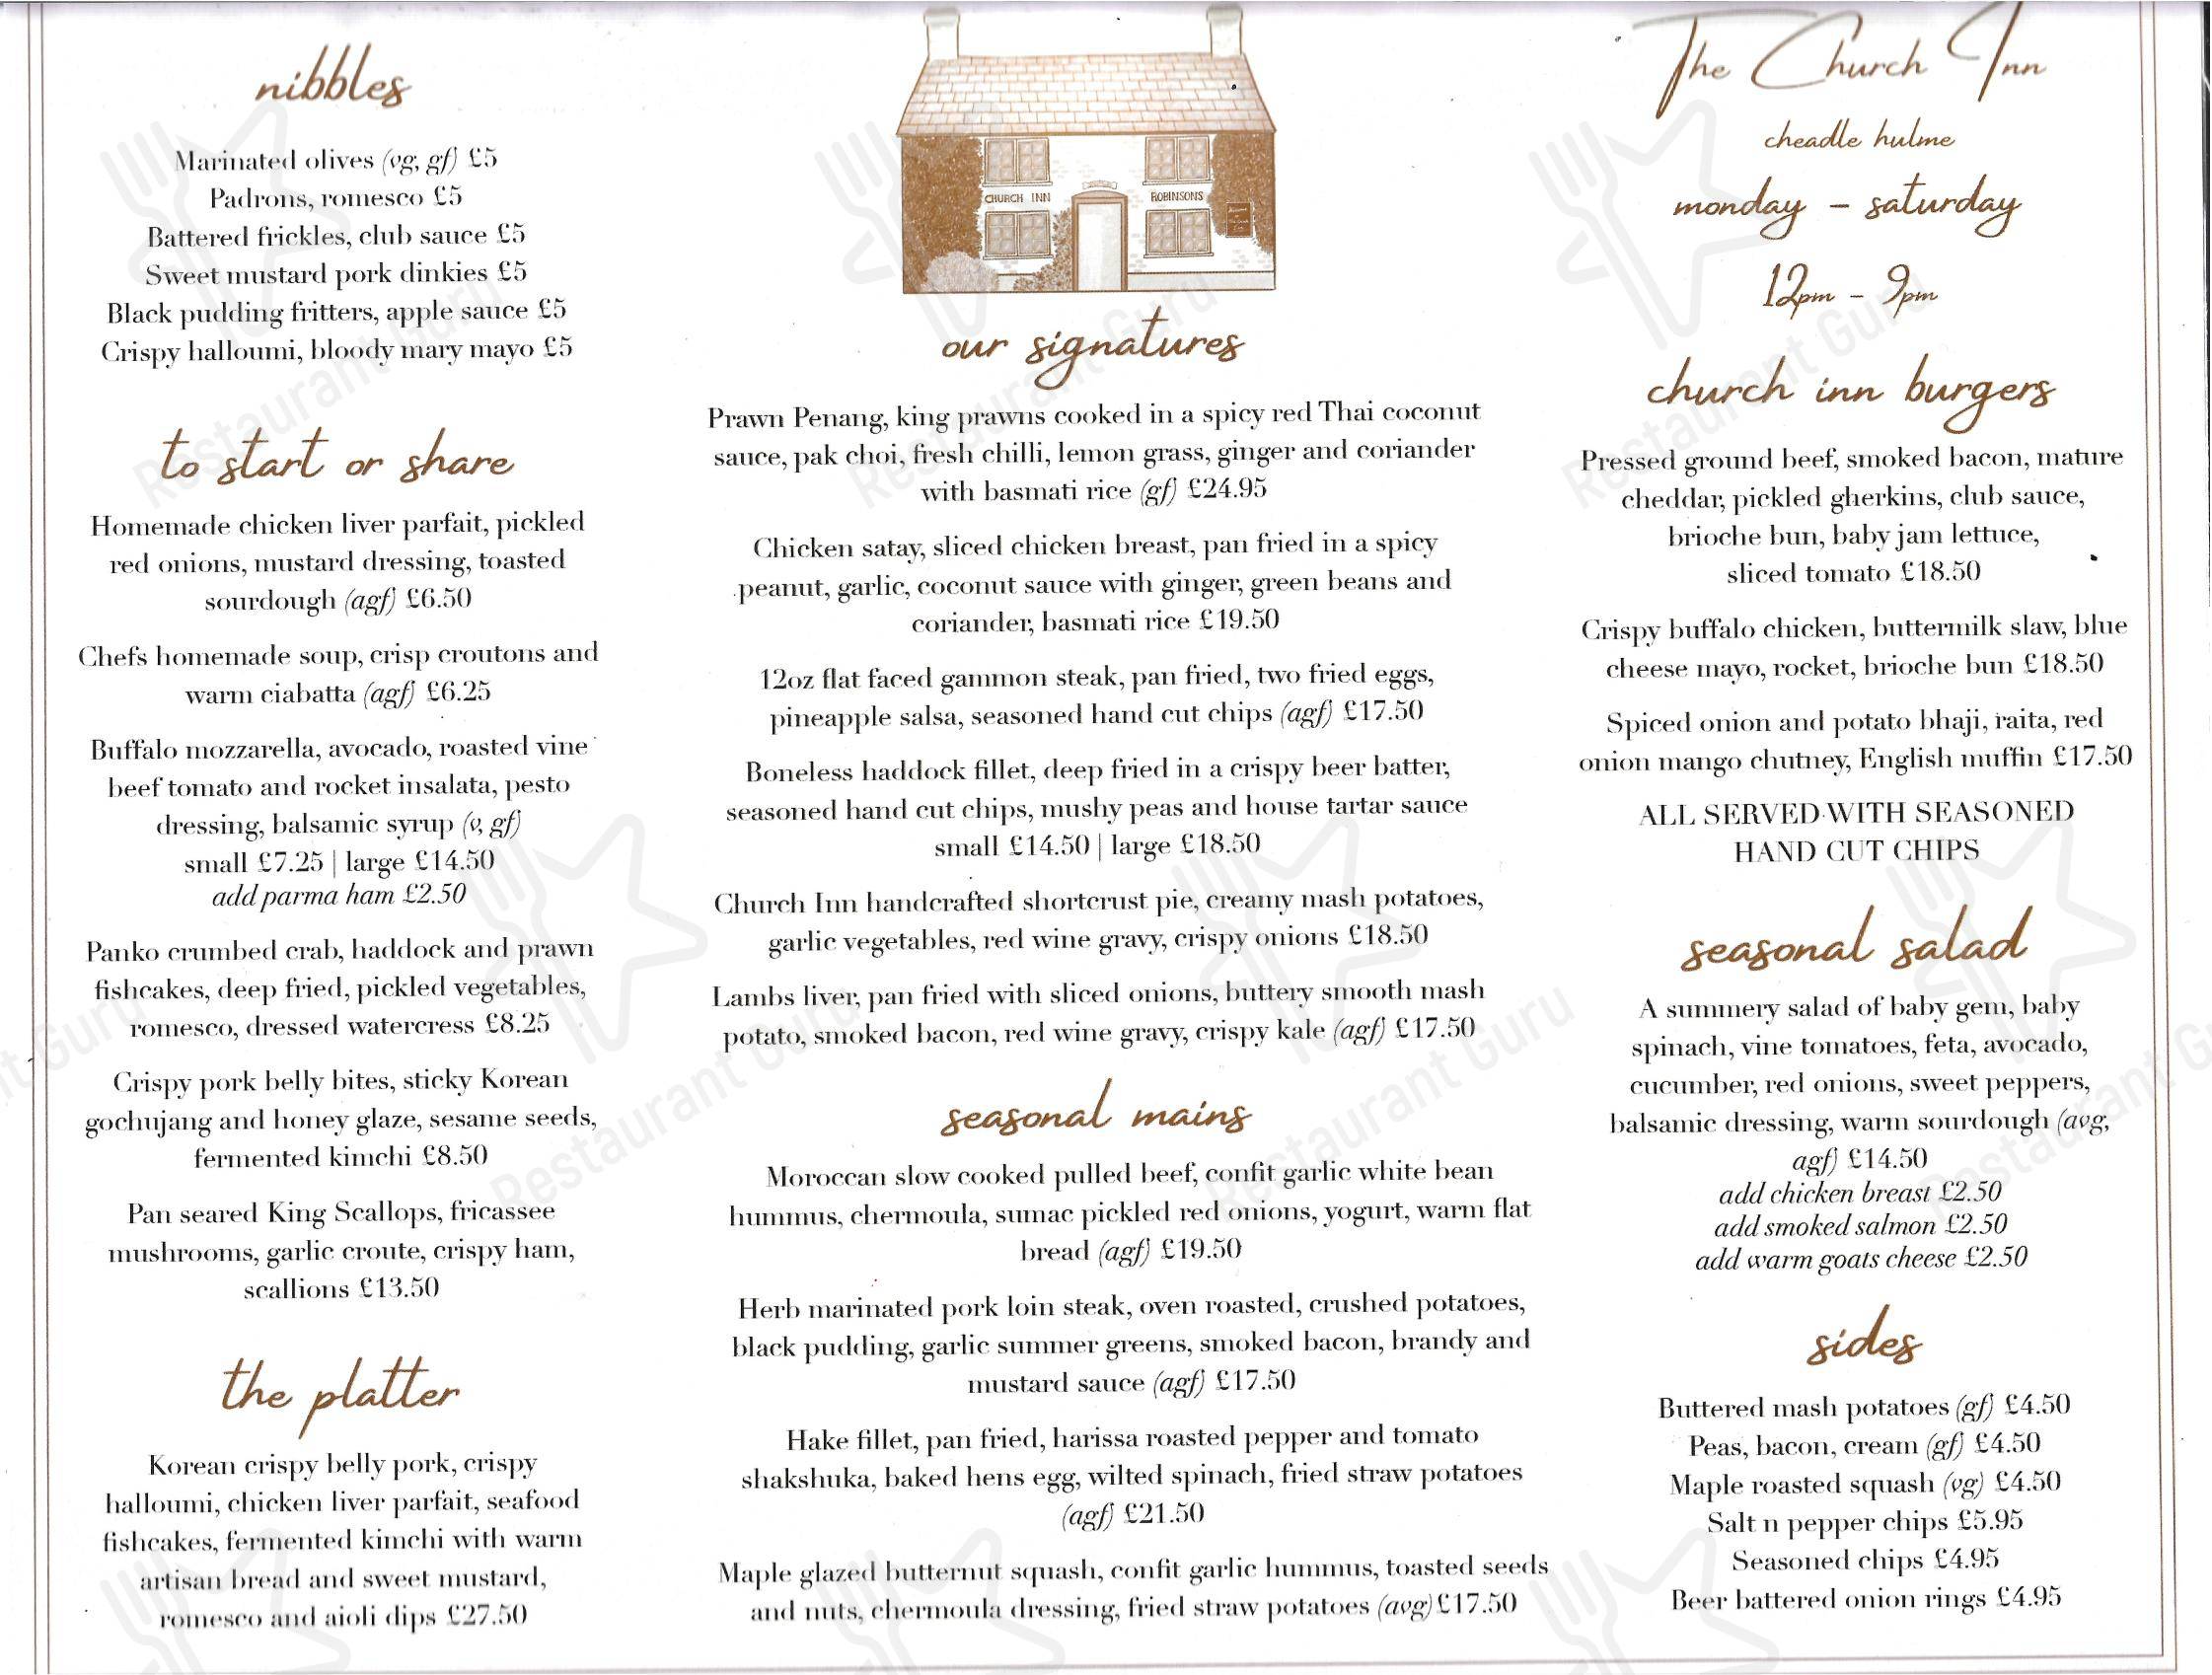 nibbles
Marinated olives (vg, gf) £5
Padrons, romesco £5
Battered frickles, club sauce £5
Sweet mustard pork dinkies £5
Black pudding fritters, apple sauce £5
Crispy halloumi, bloody mary mayo £5
to start or share
Homemade chicken liver parfait, pickled
red onions, mustard dressing, toasted
sourdough (agf) £6.50
Chefs homemade soup, crisp croutons and
warm ciabatta (agf) £6.25
Buffalo mozzarella, avocado, roasted vine
beef tomato and rocket insalata, pesto
dressing, balsamic syrup (v, gf)
small £7.25 | large £14.50
add parma ham £2.50
Panko crumbed crab, haddock and prawn
fishcakes, deep fried, pickled vegetables,
romesco, dressed watercress £8.25
Crispy pork belly bites, sticky Korean
gochujang and honey glaze, sesame seeds,
fermented kimchi £8.50
Pan seared King Scallops, fricassee
mushrooms, garlic croute, crispy ham,
scallions £13.50
the platter
Korean crispy belly pork, crispy
halloumi, chicken liver parfait, seafood
fishcakes, fermented kimchi with warm
artisan bread and sweet mustard,
romesco and aioli dips £27.50
CHURCH INN
ROBINSONS
our signatures
Prawn Penang, king prawns cooked in a spicy red Thai coconut
sauce, pak choi, fresh chilli, lemon grass, ginger and coriander
with basmati rice (gf) £24.95
Chicken satay, sliced chicken breast, pan fried in a spicy
peanut, garlic, coconut sauce with ginger, green beans and
coriander, basmati rice £19.50
12oz flat faced gammon steak, pan fried, two fried eggs,
pineapple salsa, seasoned hand cut chips (agf) £17.50
Boneless haddock fillet, deep fried in a crispy beer batter,
seasoned hand cut chips, mushy peas and house tartar sauce
small £14.50 | large £18.50
Church Inn handcrafted shortcrust pie, creamy mash potatoes,
garlic vegetables, red wine gravy, crispy onions £18.50
Lambs liver, pan fried with sliced onions, buttery smooth mash
potato, smoked bacon, red wine gravy, crispy kale (agf) £17.50
seasonal mains
Moroccan slow cooked pulled beef, confit garlic white bean
hummus, chermoula, sumac pickled red onions, yogurt, warm flat
bread (agf) £19.50
Herb marinated pork loin steak, oven roasted, crushed potatoes,
black pudding, garlic summer greens, smoked bacon, brandy and
mustard sauce (agf) £17.50
Hake fillet, pan fried, harissa roasted pepper and tomato
shakshuka, baked hens egg, wilted spinach, fried straw potatoes
(agf) £21.50
Maple glazed butternut squash, confit garlic hummus, toasted seeds
and nuts, chermoula dressing, fried straw potatoes (avg) £17.50
The Church Inn
cheadle hulme
monday - saturday
12pm - 9pm
church inn burgers
Pressed ground beef, smoked bacon, mature
cheddar, pickled gherkins, club sauce,
brioche bun, baby jam lettuce,
sliced tomato £18.50
Crispy buffalo chicken, buttermilk slaw, blue
cheese mayo, rocket, brioche bun £18.50
Spiced onion and potato bhaji, raita, red
onion mango chutney, English muffin £17.50
ALL SERVED WITH SEASONED
HAND CUT CHIPS
seasonal salad
A summery salad of baby gem, baby
spinach, vine tomatoes, feta, avocado,
cucumber, red onions, sweet peppers,
balsamic dressing, warm sourdough (avg,
agf) £14.50
add chicken breast £2.50
add smoked salmon £2.50
add warm goats cheese £2.50
sides
Buttered mash potatoes (gf) £4.50
Peas, bacon, cream (gf) £4.50
Maple roasted squash (vg) £4.50
Salt n pepper chips £5.95
Seasoned chips £4.95
Beer battered onion rings £4.95
Restaurant Guru
Restaurant Guru
Restaurant Guru
Restaurant Guru
Restaurant Guru